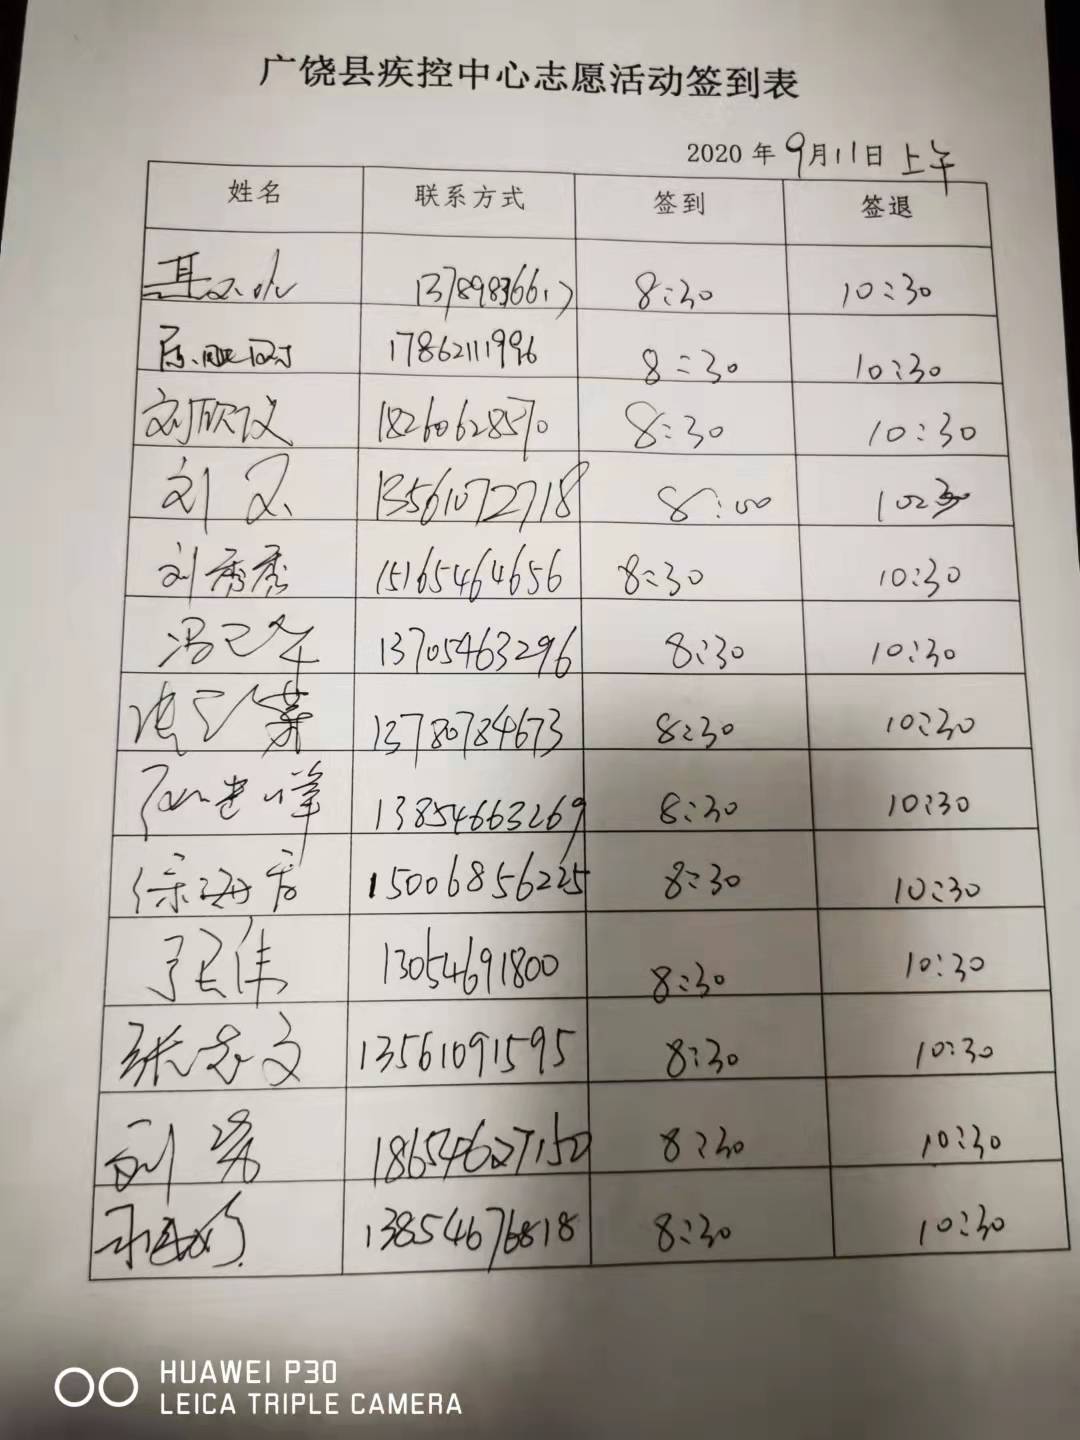 广饶县疾控中心志愿活动签到表
2020年9月11日上午
姓名 联系方式 签到 签退
8:30 10:30
17862111996 8:30 10:30
刘欣仪 18260628570 8:30 10:30
刘 13561072718 8:00 10:30
刘秀秀 15165464656 8:30 10:30
冯 13705463296 8:30 10:30
张 荣 13780784673 8:30 10:30
峰 13854663269 8:30 10:30
徐海 15006856225 8:30 10:30
张伟 13054691800 8:30 10:30
张 文 13561091595 8:30 10:30
刘 18654627152 8:30 10:30
13854676818 8:30 10:30
HUAWEI P30
LEICA TRIPLE CAMERA